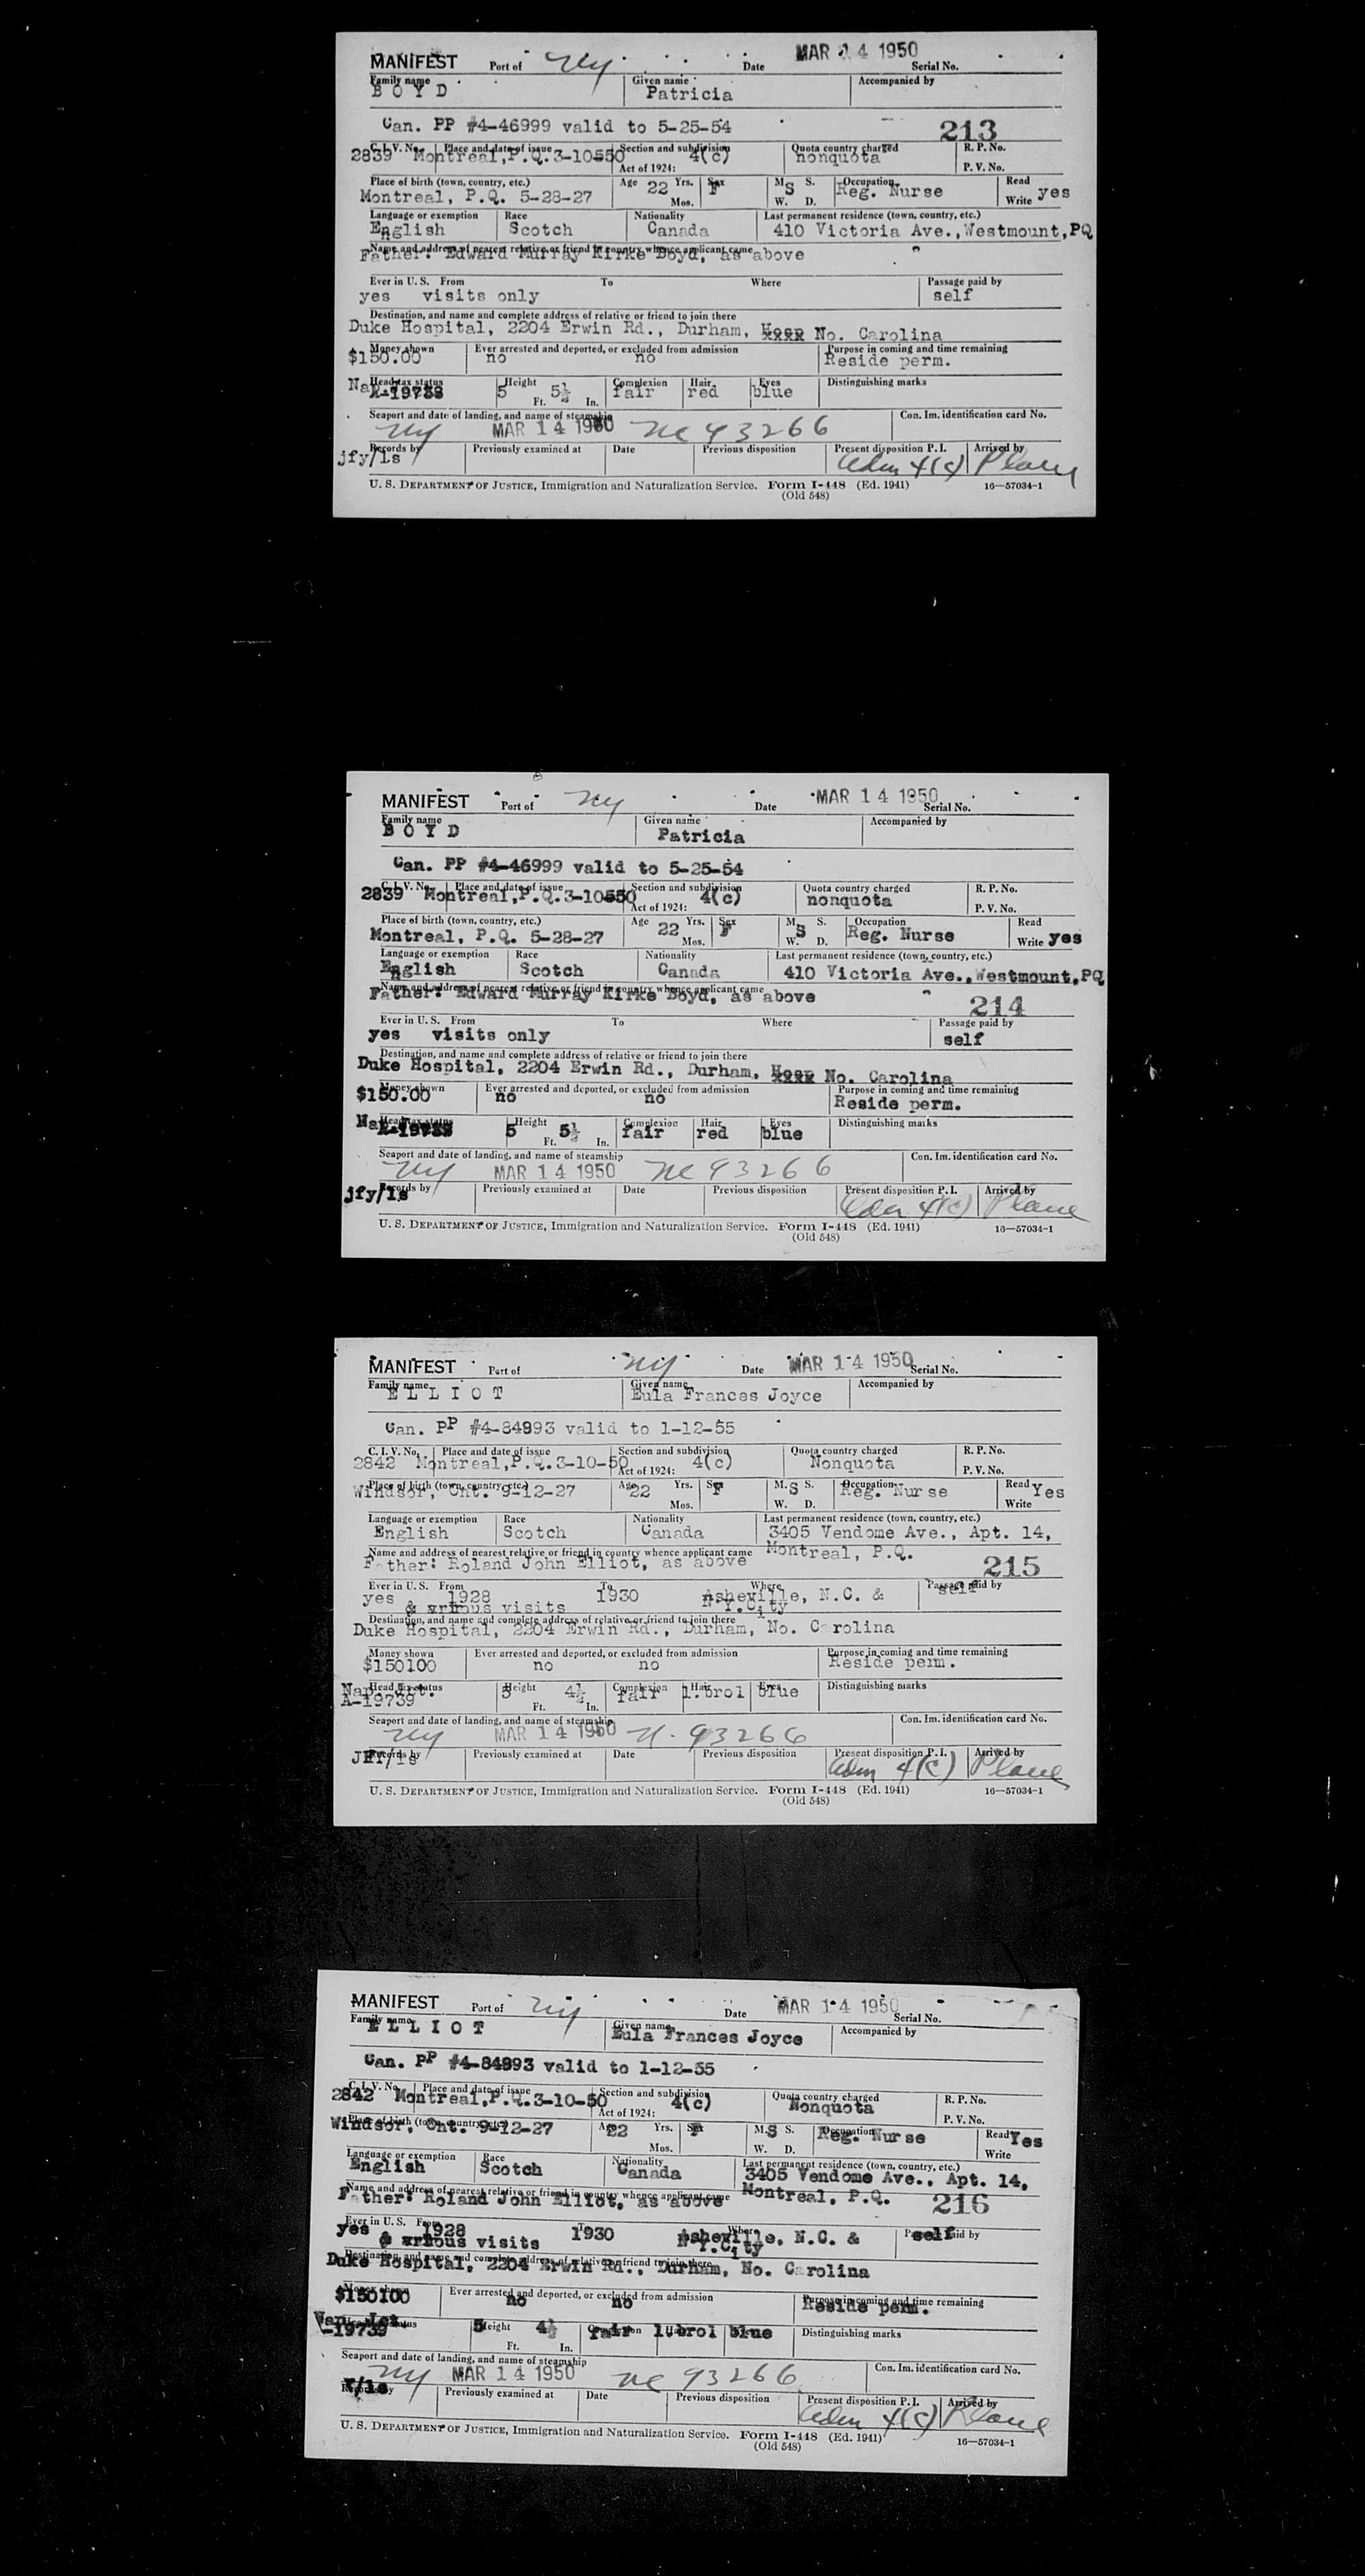 MANIFEST Port of NY Date MAR 14 1950 Serial No.
Family name BOYD Given name Patricia Accompanied by
Can. PP #4-46999 valid to 5-25-54 213
C.I.V. No. 2839 Place and date of issue Montreal,P.Q.3-10550 Section and subdivision Act of 1924: 4(c) Quota country charged nonquota R. P. No. P. V. No.
Place of birth (town, country, etc.) Montreal, P.Q. 5-28-27 Age 22 Yrs. Mos. Sex F M. S. W. D. S Occupation Reg. Nurse Read Write yes
Language or exemption English Race Scotch Nationality Canada Last permanent residence (town, country, etc.) 410 Victoria Ave.,Westmount,PQ
Name and address of nearest relative or friend in country whence applicant came Father: Edward Murray Kirke Boyd, as above
Ever in U. S. From To Where Passage paid by
yes visits only self
Destination, and name and complete address of relative or friend to join there
Duke Hospital, 2204 Erwin Rd., Durham, No. Carolina
Money shown $150.00 Ever arrested and deported, or excluded from admission no no Purpose in coming and time remaining Reside perm.
Head tax status Height 5 Ft. 5½ In. Complexion fair Hair red Eyes blue Distinguishing marks
Seaport and date of landing, and name of steamship NY MAR 14 1950 NC 93266 Con. Im. identification card No.
Records by jfy/ls Previously examined at Date Previous disposition Present disposition P. I. Adm 4(c) Arrived by Plane
U. S. DEPARTMENT OF JUSTICE, Immigration and Naturalization Service. Form I-448 (Ed. 1941) 16—57034-1
(Old 548)
MANIFEST Port of NY Date MAR 14 1950 Serial No.
Family name BOYD Given name Patricia Accompanied by
Can. PP #4-46999 valid to 5-25-54
C.I.V. No. 2839 Place and date of issue Montreal,P.Q.3-10550 Section and subdivision Act of 1924: 4(c) Quota country charged nonquota R. P. No. P. V. No.
Place of birth (town, country, etc.) Montreal, P.Q. 5-28-27 Age 22 Yrs. Mos. Sex F M. S. W. D. S Occupation Reg. Nurse Read Write yes
Language or exemption English Race Scotch Nationality Canada Last permanent residence (town, country, etc.) 410 Victoria Ave.,Westmount,PQ
Name and address of nearest relative or friend in country whence applicant came Father: Edward Murray Kirke Boyd, as above 214
Ever in U. S. From To Where Passage paid by
yes visits only self
Destination, and name and complete address of relative or friend to join there
Duke Hospital, 2204 Erwin Rd., Durham, No. Carolina
Money shown $150.00 Ever arrested and deported, or excluded from admission no no Purpose in coming and time remaining Reside perm.
Head tax status Height 5 Ft. 5½ In. Complexion fair Hair red Eyes blue Distinguishing marks
Seaport and date of landing, and name of steamship NY MAR 14 1950 NC 93266 Con. Im. identification card No.
Records by jfy/ls Previously examined at Date Previous disposition Present disposition P. I. Adm 4(c) Arrived by Plane
U. S. DEPARTMENT OF JUSTICE, Immigration and Naturalization Service. Form I-448 (Ed. 1941) 16—57034-1
(Old 548)
MANIFEST Port of NY Date MAR 14 1950 Serial No.
Family name ELLIOT Given name Eula Frances Joyce Accompanied by
Can. PP #4-84993 valid to 1-12-55
C. I. V. No. 2842 Place and date of issue Montreal,P.Q.3-10-50 Section and subdivision Act of 1924: 4(c) Quota country charged Nonquota R. P. No. P. V. No.
Place of birth (town, country, etc.) Windsor, Ont. 9-12-27 Age 22 Yrs. Mos. Sex F M. S. W. D. S Occupation Reg. Nurse Read Write Yes
Language or exemption English Race Scotch Nationality Canada Last permanent residence (town, country, etc.) 3405 Vendome Ave., Apt. 14,
Name and address of nearest relative or friend in country whence applicant came Montreal, P.Q.
Father: Roland John Elliot, as above 215
Ever in U. S. From To Where Passage paid by
yes 1928 1930 Asheville, N.C. & self
& visits N.Y.City
Destination, and name and complete address of relative or friend to join there
Duke Hospital, 2204 Erwin Rd., Durham, No. Carolina
Money shown $150100 Ever arrested and deported, or excluded from admission no no Purpose in coming and time remaining Reside perm.
Head tax status A-19739 Height 5 Ft. 4½ In. Complexion fair Hair l.bro1 Eyes blue Distinguishing marks
Seaport and date of landing, and name of steamship NY MAR 14 1950 N. 93266 Con. Im. identification card No.
Records by JFY/ls Previously examined at Date Previous disposition Present disposition P. I. Adm 4(c) Arrived by Plane
U. S. DEPARTMENT OF JUSTICE, Immigration and Naturalization Service. Form I-448 (Ed. 1941) 16—57034-1
(Old 548)
MANIFEST Port of NY Date MAR 14 1950 Serial No.
Family name ELLIOT Given name Eula Frances Joyce Accompanied by
Can. PP #4-84993 valid to 1-12-55
C. I. V. No. 2842 Place and date of issue Montreal,P.Q.3-10-50 Section and subdivision Act of 1924: 4(c) Quota country charged Nonquota R. P. No. P. V. No.
Place of birth (town, country, etc.) Windsor, Ont. 9-12-27 Age 22 Yrs. Mos. Sex F M. S. W. D. S Occupation Reg. Nurse Read Write Yes
Language or exemption English Race Scotch Nationality Canada Last permanent residence (town, country, etc.) 3405 Vendome Ave., Apt. 14,
Name and address of nearest relative or friend in country whence applicant came Montreal, P.Q.
Father: Roland John Elliot, as above 216
Ever in U. S. From To Where Passage paid by
yes 1928 1930 Asheville, N.C. & self
& visits N.Y.City
Destination, and name and complete address of relative or friend to join there
Duke Hospital, 2204 Erwin Rd., Durham, No. Carolina
Money shown $150100 Ever arrested and deported, or excluded from admission no no Purpose in coming and time remaining Reside perm.
-19739 Height 5 Ft. 4½ In. Complexion fair l.bro1 blue Distinguishing marks
Seaport and date of landing, and name of steamship NY MAR 14 1950 NC 93266 Con. Im. identification card No.
Records by /ls Previously examined at Date Previous disposition Present disposition P. I. Adm 4(c) Arrived by Plane
U. S. DEPARTMENT OF JUSTICE, Immigration and Naturalization Service. Form I-448 (Ed. 1941) 16—57034-1
(Old 548)